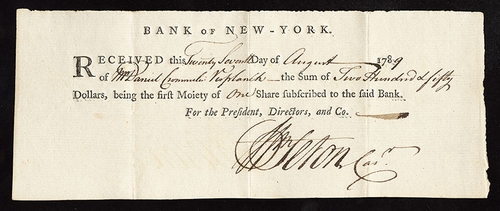 BANK OF NEW-YORK.
RECEIVED this Twenty Seventh Day of August 1789
of Mr. Daniel Crommelin Verplanck the Sum of Two Hundred & fifty
Dollars, being the first Moiety of One Share subscribed to the said Bank.
For the President, Directors, and Co.
Wm Seton Casr.